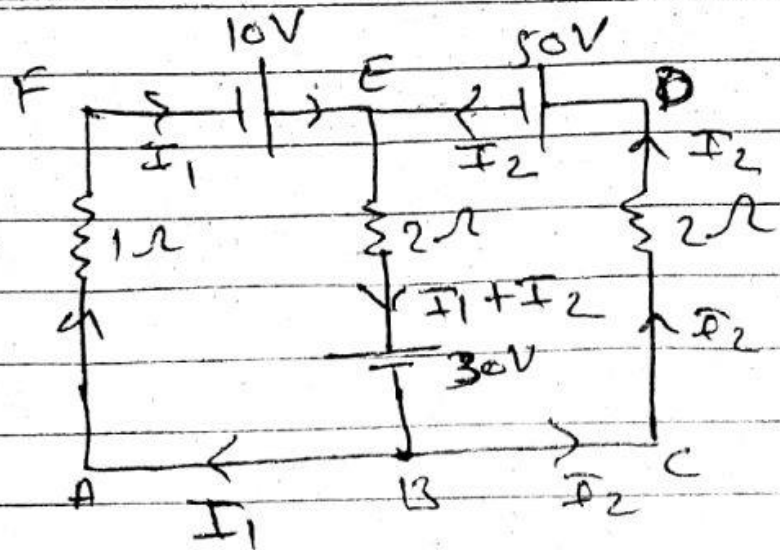 10V 50V
F E D
I₁ I₂ I₂
1Ω 2Ω 2Ω
I₁ + I₂ I₂
30V
A B C
I₁ I₂